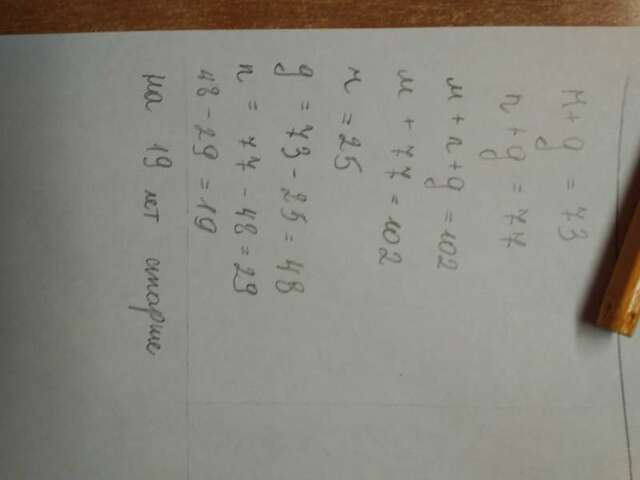 м + g = 73
п + g = 77
м + п + g = 102
м + 77 = 102
м = 25
g = 73 - 25 = 48
п = 77 - 48 = 29
48 - 29 = 19
на 19 лет старше